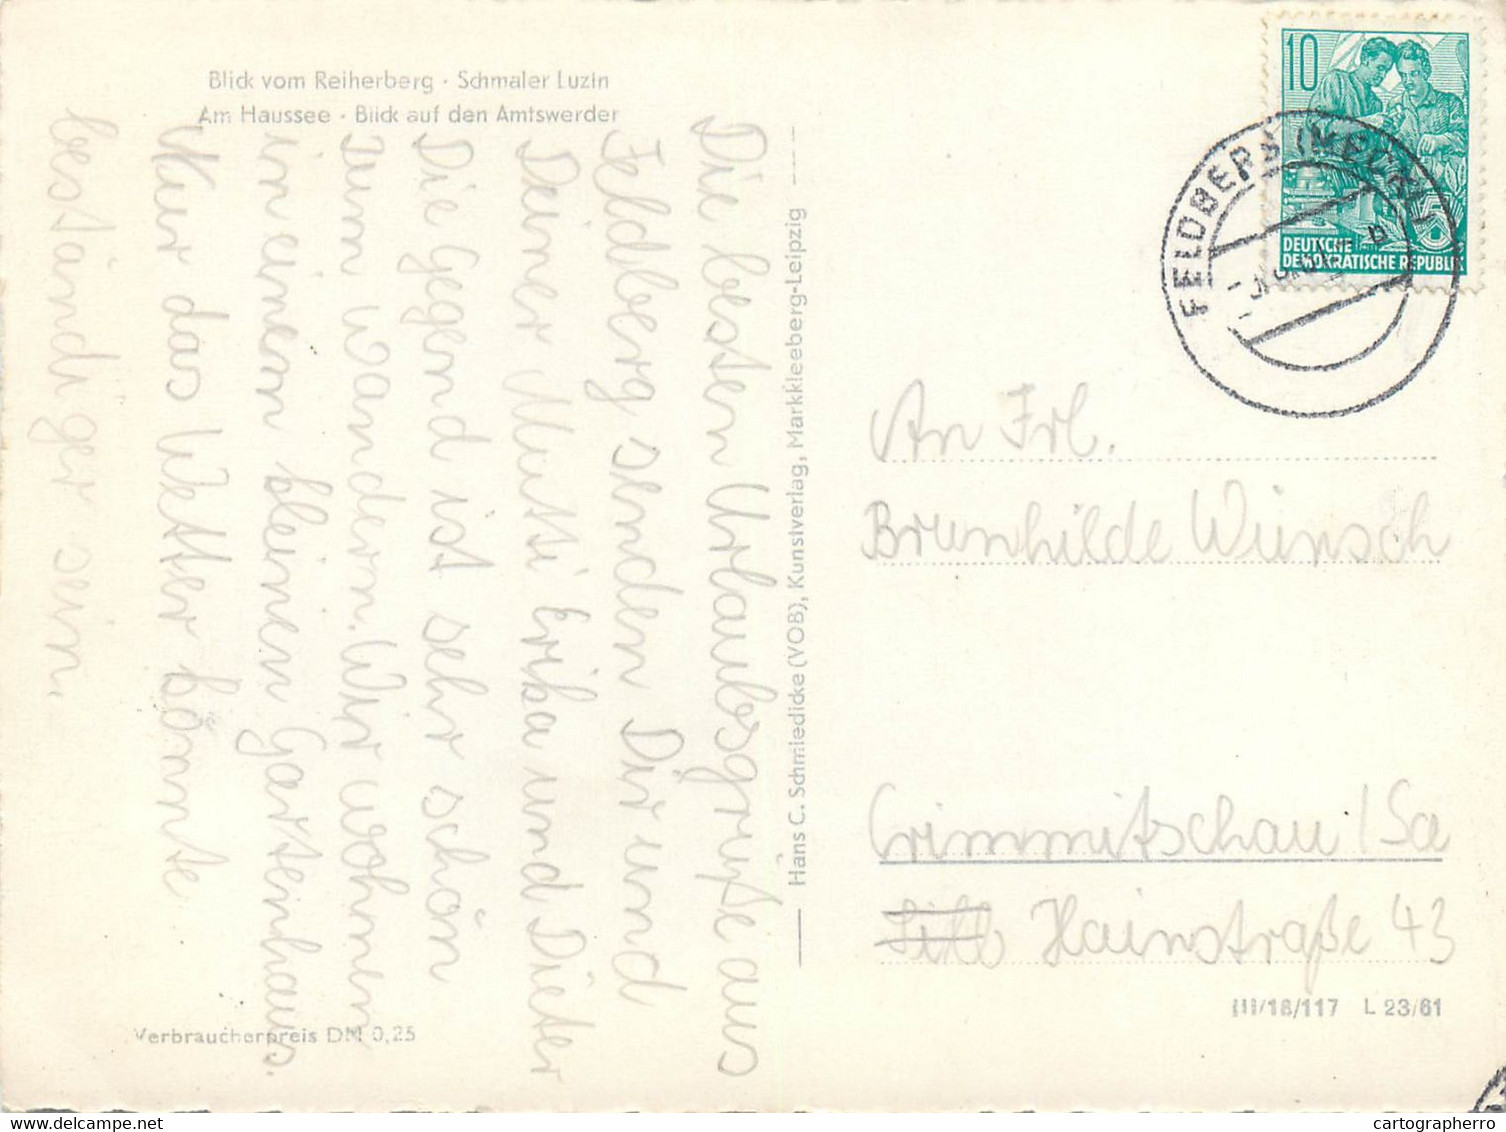 Blick vom Reiherberg · Schmaler Luzin
Am Haussee · Blick auf den Amtswerder
Die besten Urlaubsgrüße aus
Feldberg senden Dir und
Deiner Mutti Erika und Dieter
Die Gegend ist sehr schön
zum wandern. Wir wohnen
in einem kleinen Gartenhaus.
Nur das Wetter könnte
beständiger sein.
Verbraucherpreis DM 0,25
Hans C. Schmiedicke (VOB), Kunstverlag, Markkleeberg-Leipzig
10
DEUTSCHE
DEMOKRATISCHE REPUBLIK
FELDBERG (MECKL)
b
An Frl.
Brunhilde Wünsch
Crimmitschau / Sa
Hainstraße 43
III/18/117 L 23/61
cartographerro